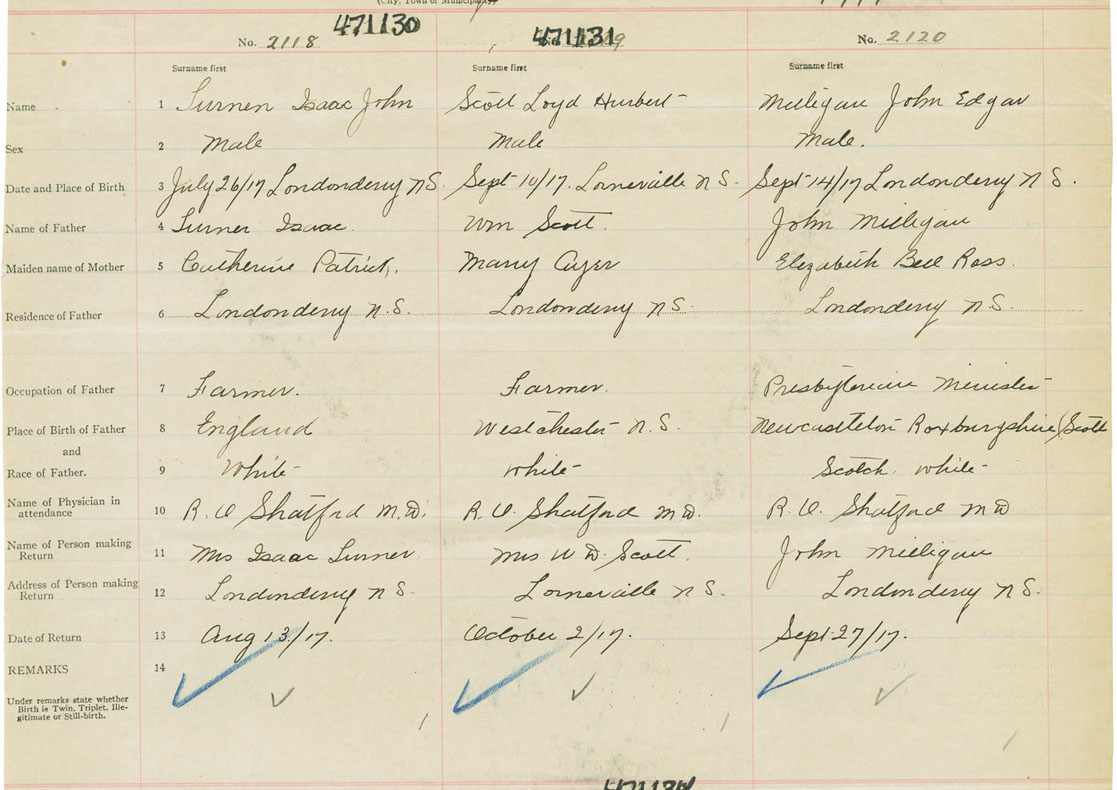 (City, Town or Municipality)
471130 471131
No. 2118 No. 2120
Surname first Surname first Surname first
Name 1 Turner Isaac John Scott Loyd Hurbert Milligan John Edgar
Sex 2 Male Male Male.
Date and Place of Birth 3 July 26/17 Londonderry N S. Sept 10/17. Lorneville N S. Sept 14/17 Londonderry N S.
Name of Father 4 Turner Isaac. Wm Scott. John Milligan
Maiden name of Mother 5 Catherine Patrick. Mary Ayer Elizabeth Bell Ross.
Residence of Father 6 Londonderry N.S. Londonderry N S. Londonderry N S.
Occupation of Father 7 Farmer. Farmer. Presbyterian Minister
Place of Birth of Father 8 England Westchester N.S. Newcastleton Roxburgshire/Scott
and
Race of Father. 9 White White Scotch White
Name of Physician in attendance 10 R. O Shatford M.D. R. O. Shatford M D. R. O. Shatford M D
Name of Person making Return 11 Mrs Isaac Turner. Mrs W D. Scott. John Milligan
Address of Person making Return 12 Londonderry N S. Lorneville N S. Londonderry N S.
Date of Return 13 Aug 13/17. October 2/17. Sept 27/17.
REMARKS 14
Under remarks state whether
Birth is Twin, Triplet, Ille-
gitimate or Still-birth.